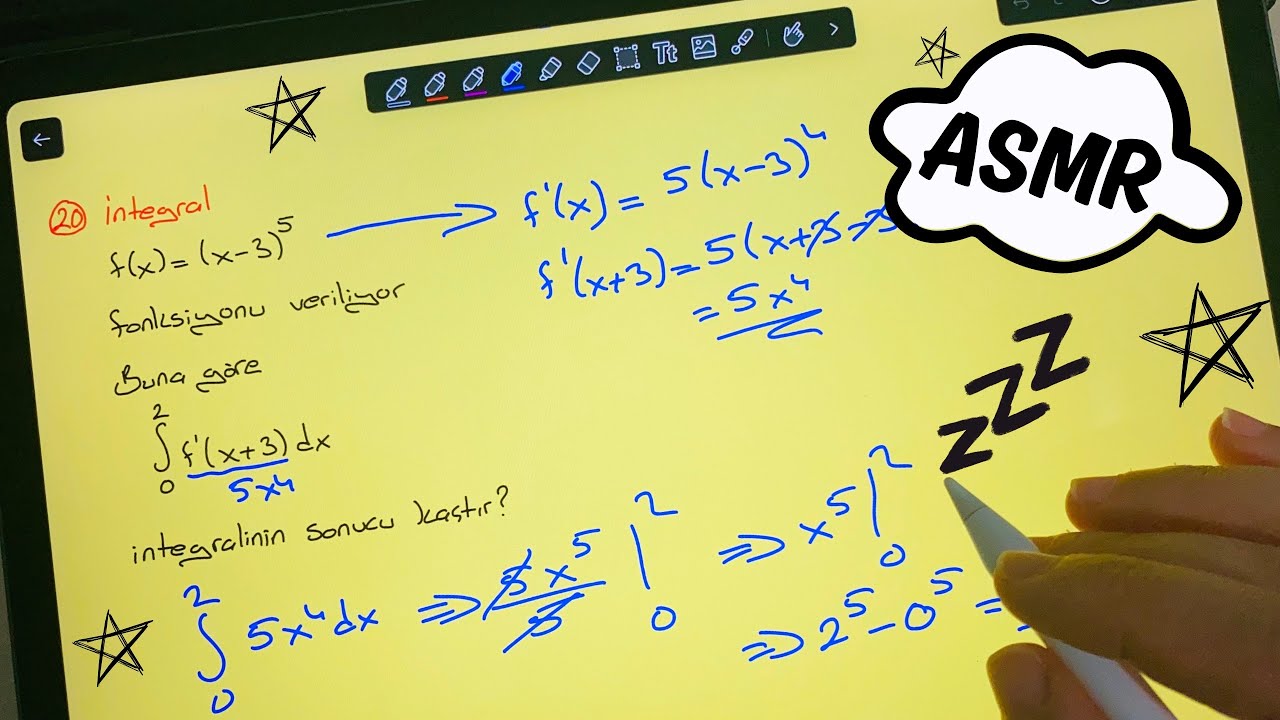 Tt
ASMR
20 integral
f(x) = (x-3)^5
fonksiyonu veriliyor
Buna göre
∫_0^2 f'(x+3) dx
5x^4
integralinin sonucu kaçtır?
f'(x) = 5(x-3)^4
f'(x+3) = 5(x+3-3
= 5x^4
zzz
∫_0^2 5x^4 dx ⇒ 5x^5/5 |_0^2 ⇒ x^5 |_0^2
⇒ 2^5 - 0^5 =